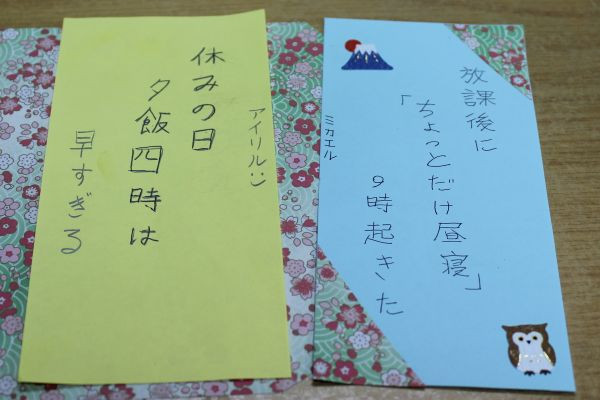 放課後に
「ちょっとだけ昼寝」
9時起きた
ミカエル
アイリル:)
休みの日
夕飯四時は
早すぎる